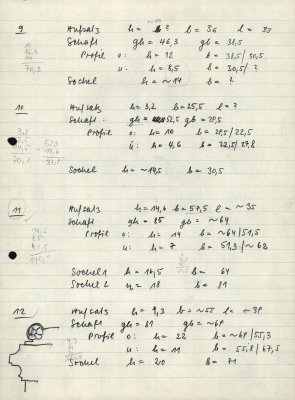 9 Aufsatz h = ~10 b = 36 l = 33
Schaft gh = 46,3 gb = 38,5
Profil o: h = 12 b = 38,5/30,5
u: h = 8,5 b = 30,5/ ?
Sockel h = ~14 b = ?
10
46,3
14
70,3
10 Aufsatz h = 3,2 b = 25,5 l = ?
Schaft: gh = 52,5 gb = 28,5
Profil o: h = 10 b = 28,5/22,5
ü: h = 4,6 b = 22,5/27,8
Sockel h = ~14,5 b = 30,5
3,2
52,5
14,5
70,2
52,5
- 14,6
37,9
11 Aufsatz h = 14,6 b = 57,5 l = ~35
Schaft gh = 85 gb = ~64
Profil o: h = 14 b = ~64/51,5
u: h = 7 b = 51,3/~62
Sockel 1 h = 16,5 b = 64
Sockel 2 h = 18 b = 81
12 Aufsatz h = 9,3 b = ~55 l = ~38
Schaft gh = 81 gb = ~69
Profil o: h = 22 b = ~69/55,3
u: h = 11 b = 55,8/67,5
Sockel h = 20 b = 71